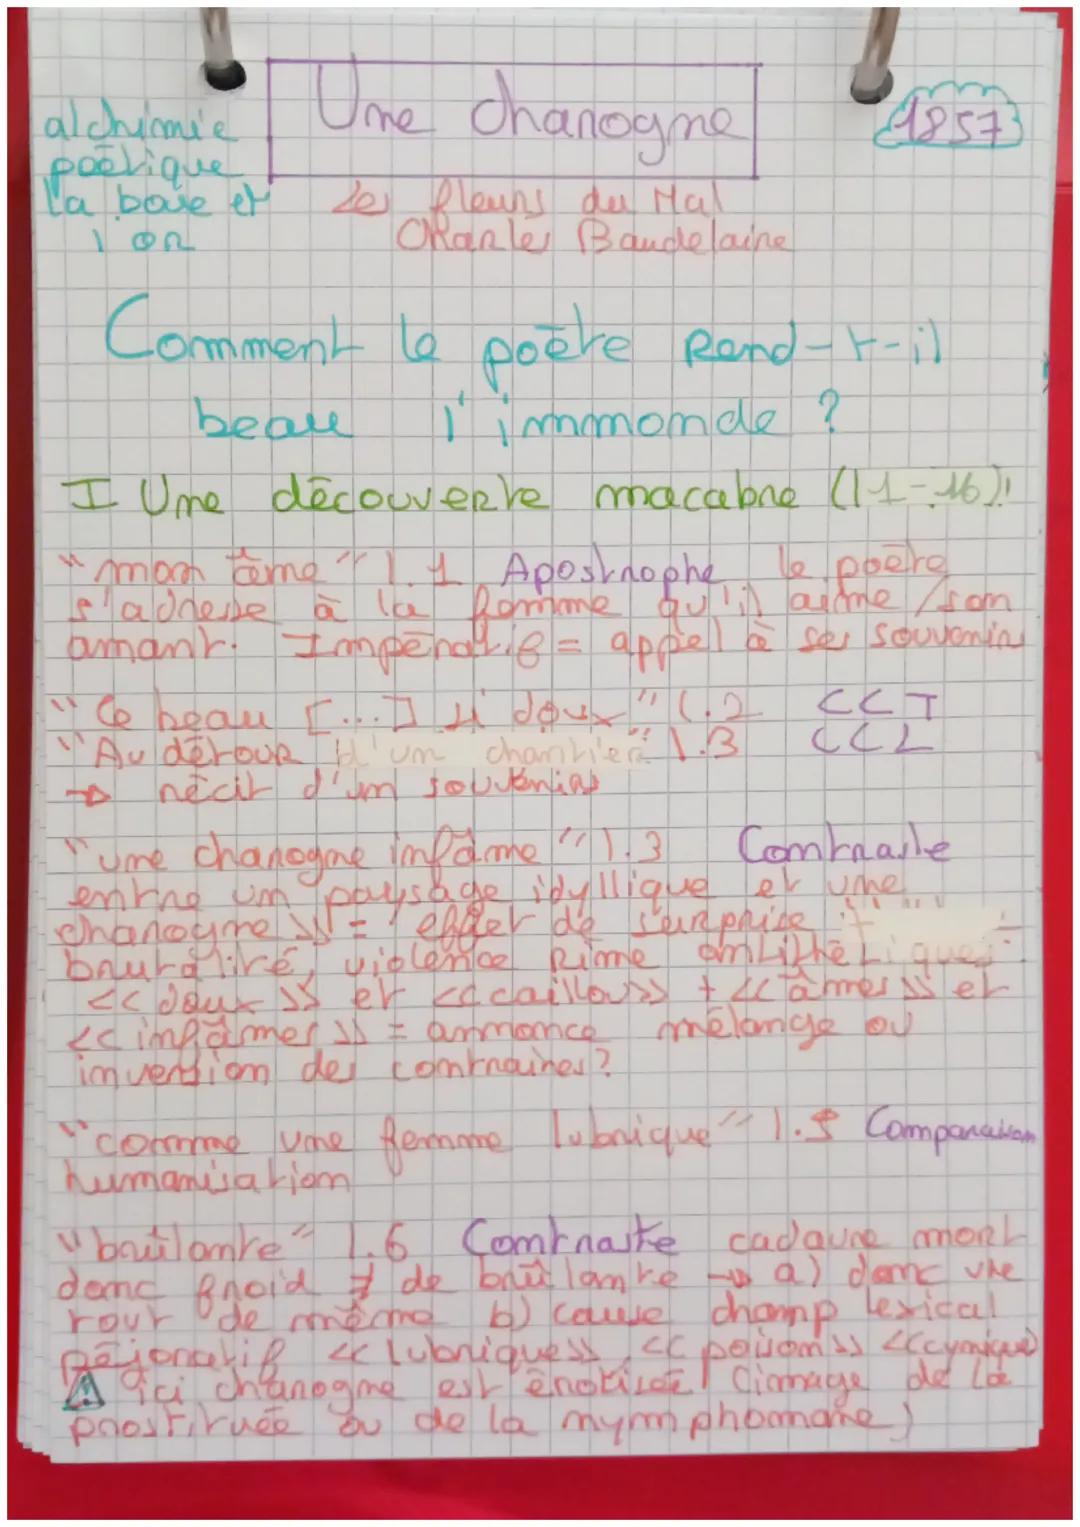 Une charogne
1857
alchimie
poétique
la boue et
l'or
Les fleurs du Mal
Charles Baudelaire
Comment le poète rend-t-il
beau l'immonde ?
I Une découverte macabre (l 1-16):
"mon âme" l.1 Apostrophe le poète
s'adresse à la femme qu'il aime / son
amant. Impératif = appel à ses souvenirs
"Ce beau [...] si doux" l.2 CCT
"Au détour d'un chantier" l.3 CCL
→ récit d'un souvenirs
"une charogne infâme" l.3 Contraste
entre un paysage idyllique et une
charogne >> = effet de surprise +
brutalité, violence Rime antithétique:
<< doux >> et << caillou >> + << âmes >> et
<< infâmes >> = annonce mélange ou
invention des contraires ?
"comme une femme lubrique" l.5 Comparaison
humanisation
"brûlante" l.6 Contraste cadavre mort
donc froid ≠ de brûlante → a) donc vie
tout de même b) cause champ lexical
péjoratif << lubrique >> << poison >> << cynique >>
ici charogne est érotisée (image de la
prostituée ou de la nymphomane)